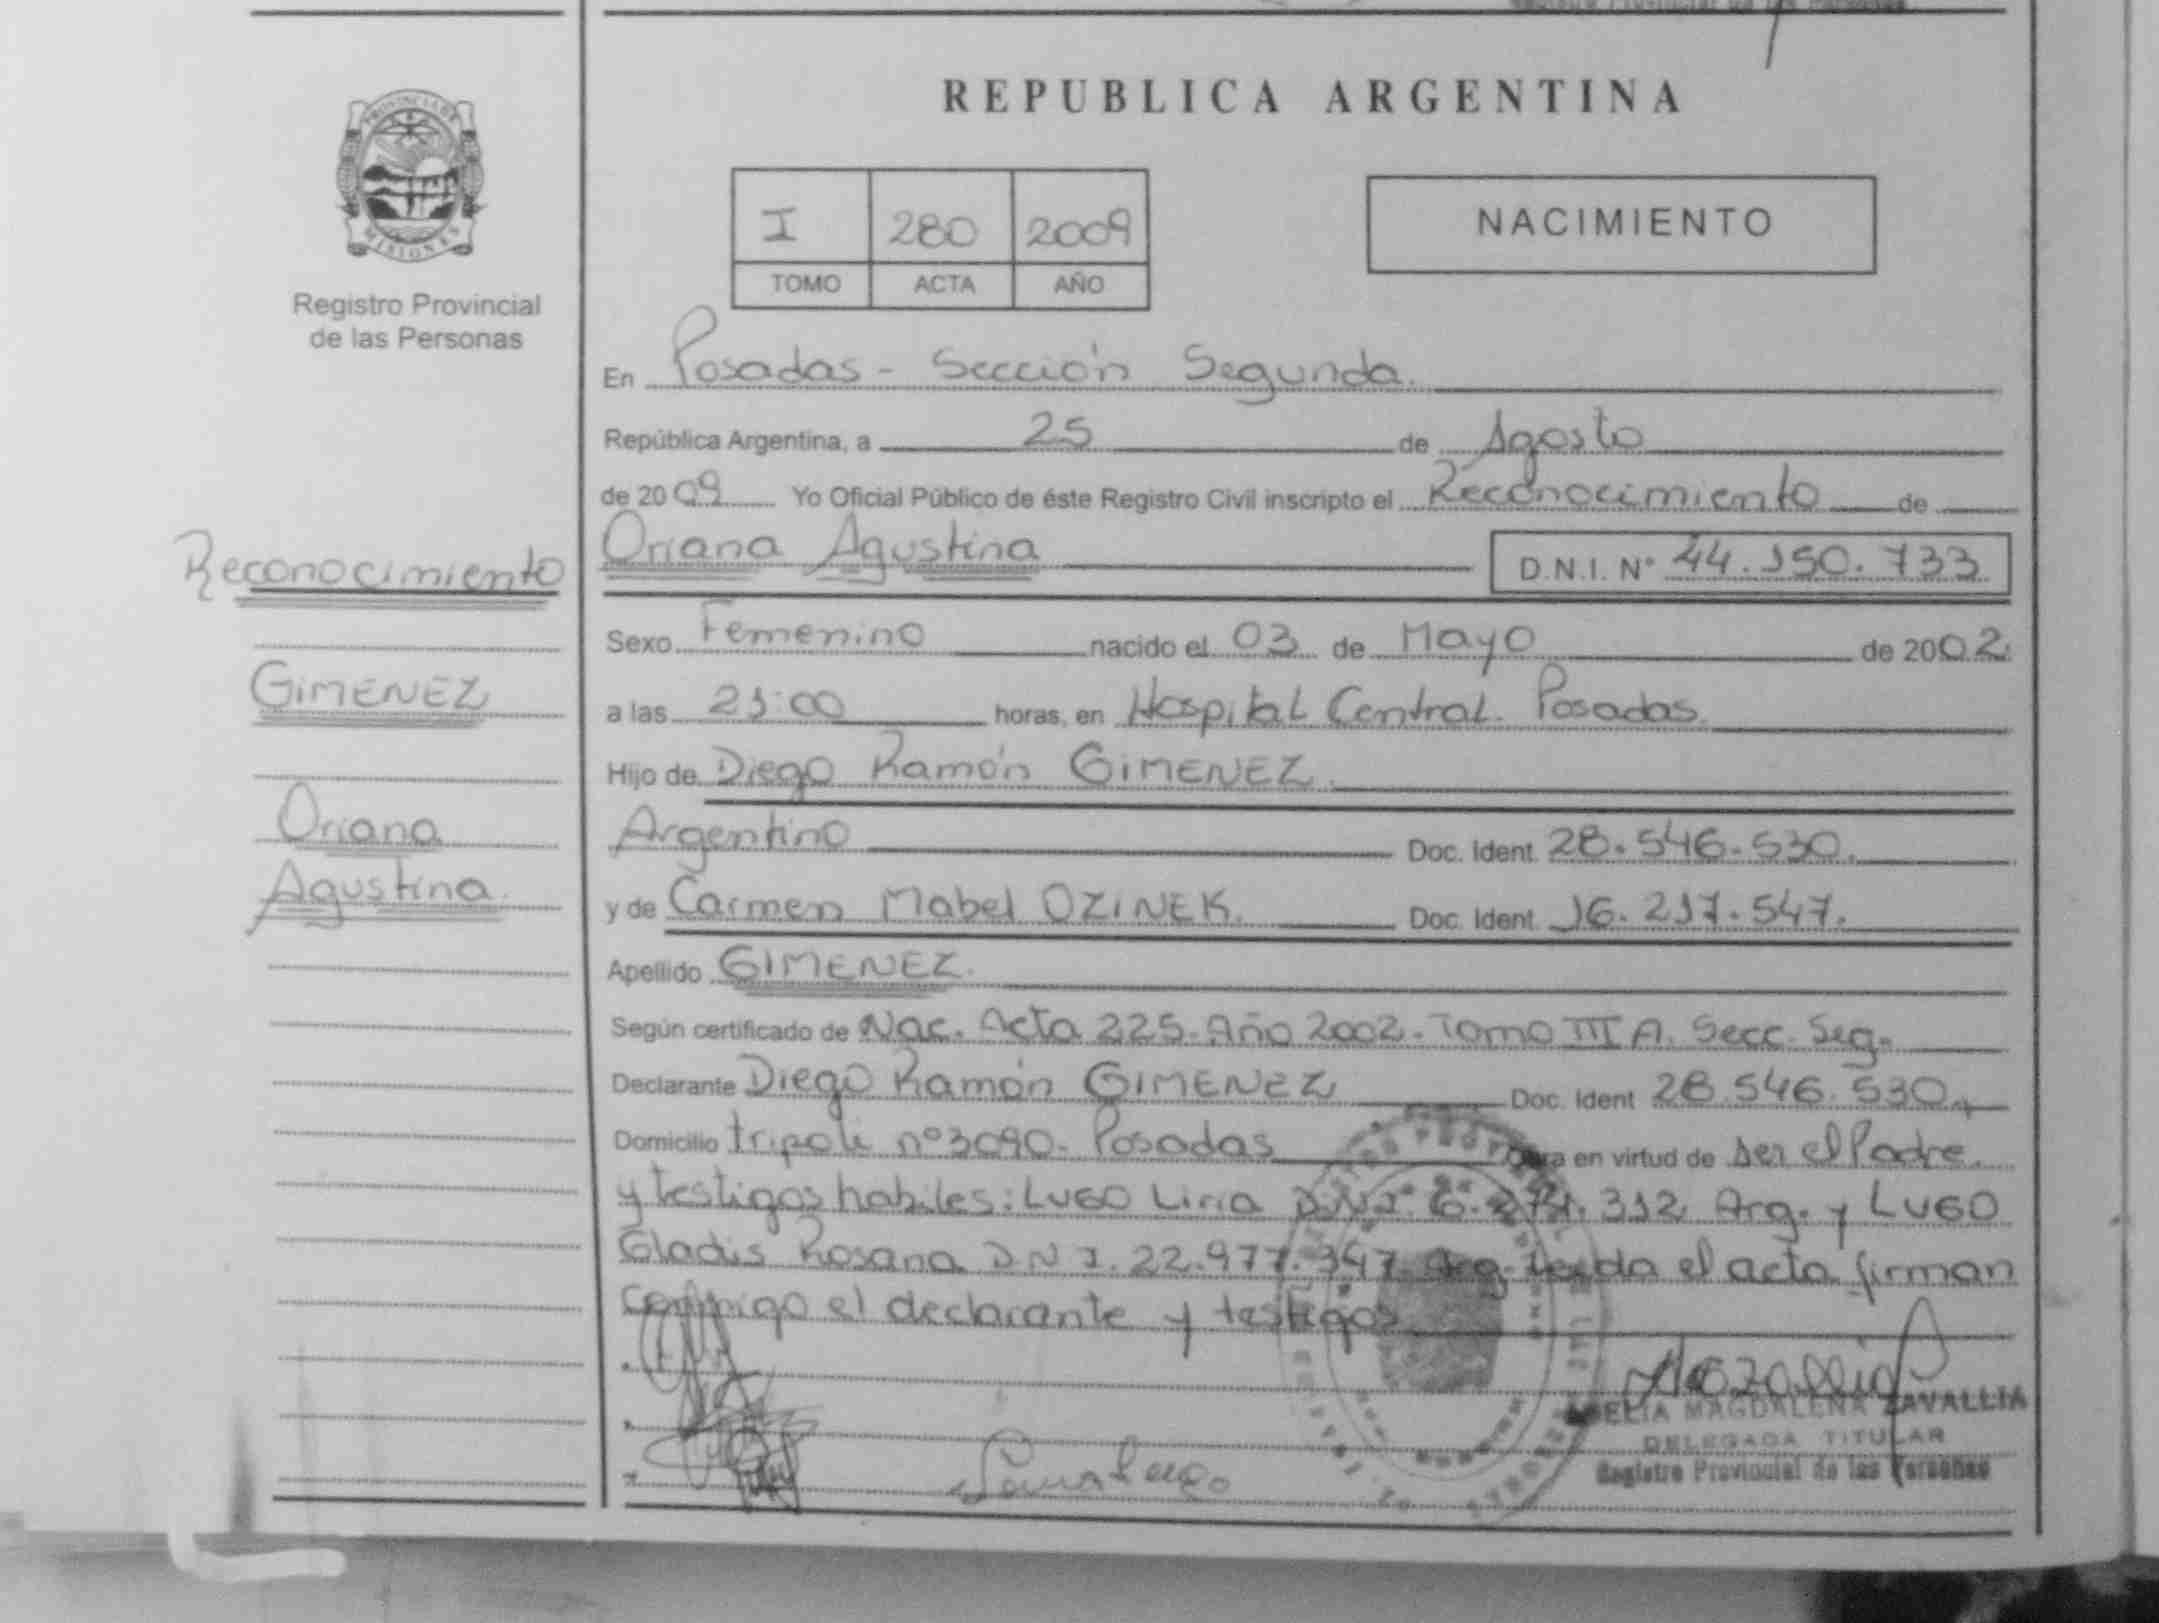 REPUBLICA ARGENTINA
PROVINCIA DE
MISIONES
Registro Provincial
de las Personas
I 280 2009
TOMO ACTA AÑO
NACIMIENTO
En Posadas - Sección Segunda.
República Argentina, a 25 de Agosto
de 2009 Yo Oficial Público de éste Registro Civil inscripto el Reconocimiento de
Oriana Agustina D.N.I. N° 44.150.733
Reconocimiento
GIMENEZ
Oriana
Agustina.
Sexo Femenino nacido el 03 de Mayo de 2002
a las 21:00 horas, en Hospital Central. Posadas.
Hijo de Diego Ramón GIMENEZ.
Argentino Doc. Ident. 28.546.530.
y de Carmen Mabel OZINEK. Doc. Ident. 16.217.547.
Apellido GIMENEZ.
Según certificado de Nac. Acta 225. Año 2002. Tomo III A. Secc. Seg.
Declarante Diego Ramón GIMENEZ Doc. Ident 28.546.530.
Domicilio tripoli nº 3090. Posadas Obra en virtud de ser el Padre.
y testigos habiles: LUGO Liria D.N.I. 312 Arg. y LUGO
Gladis Rosana D.N.I. 22.977.347. Arg. Leida el acta firman
conmigo el declarante y testigos
Lugo
MAGDALENA ZAVALLIA
DELEGADA TITULAR
Registro Provincial de las Personas